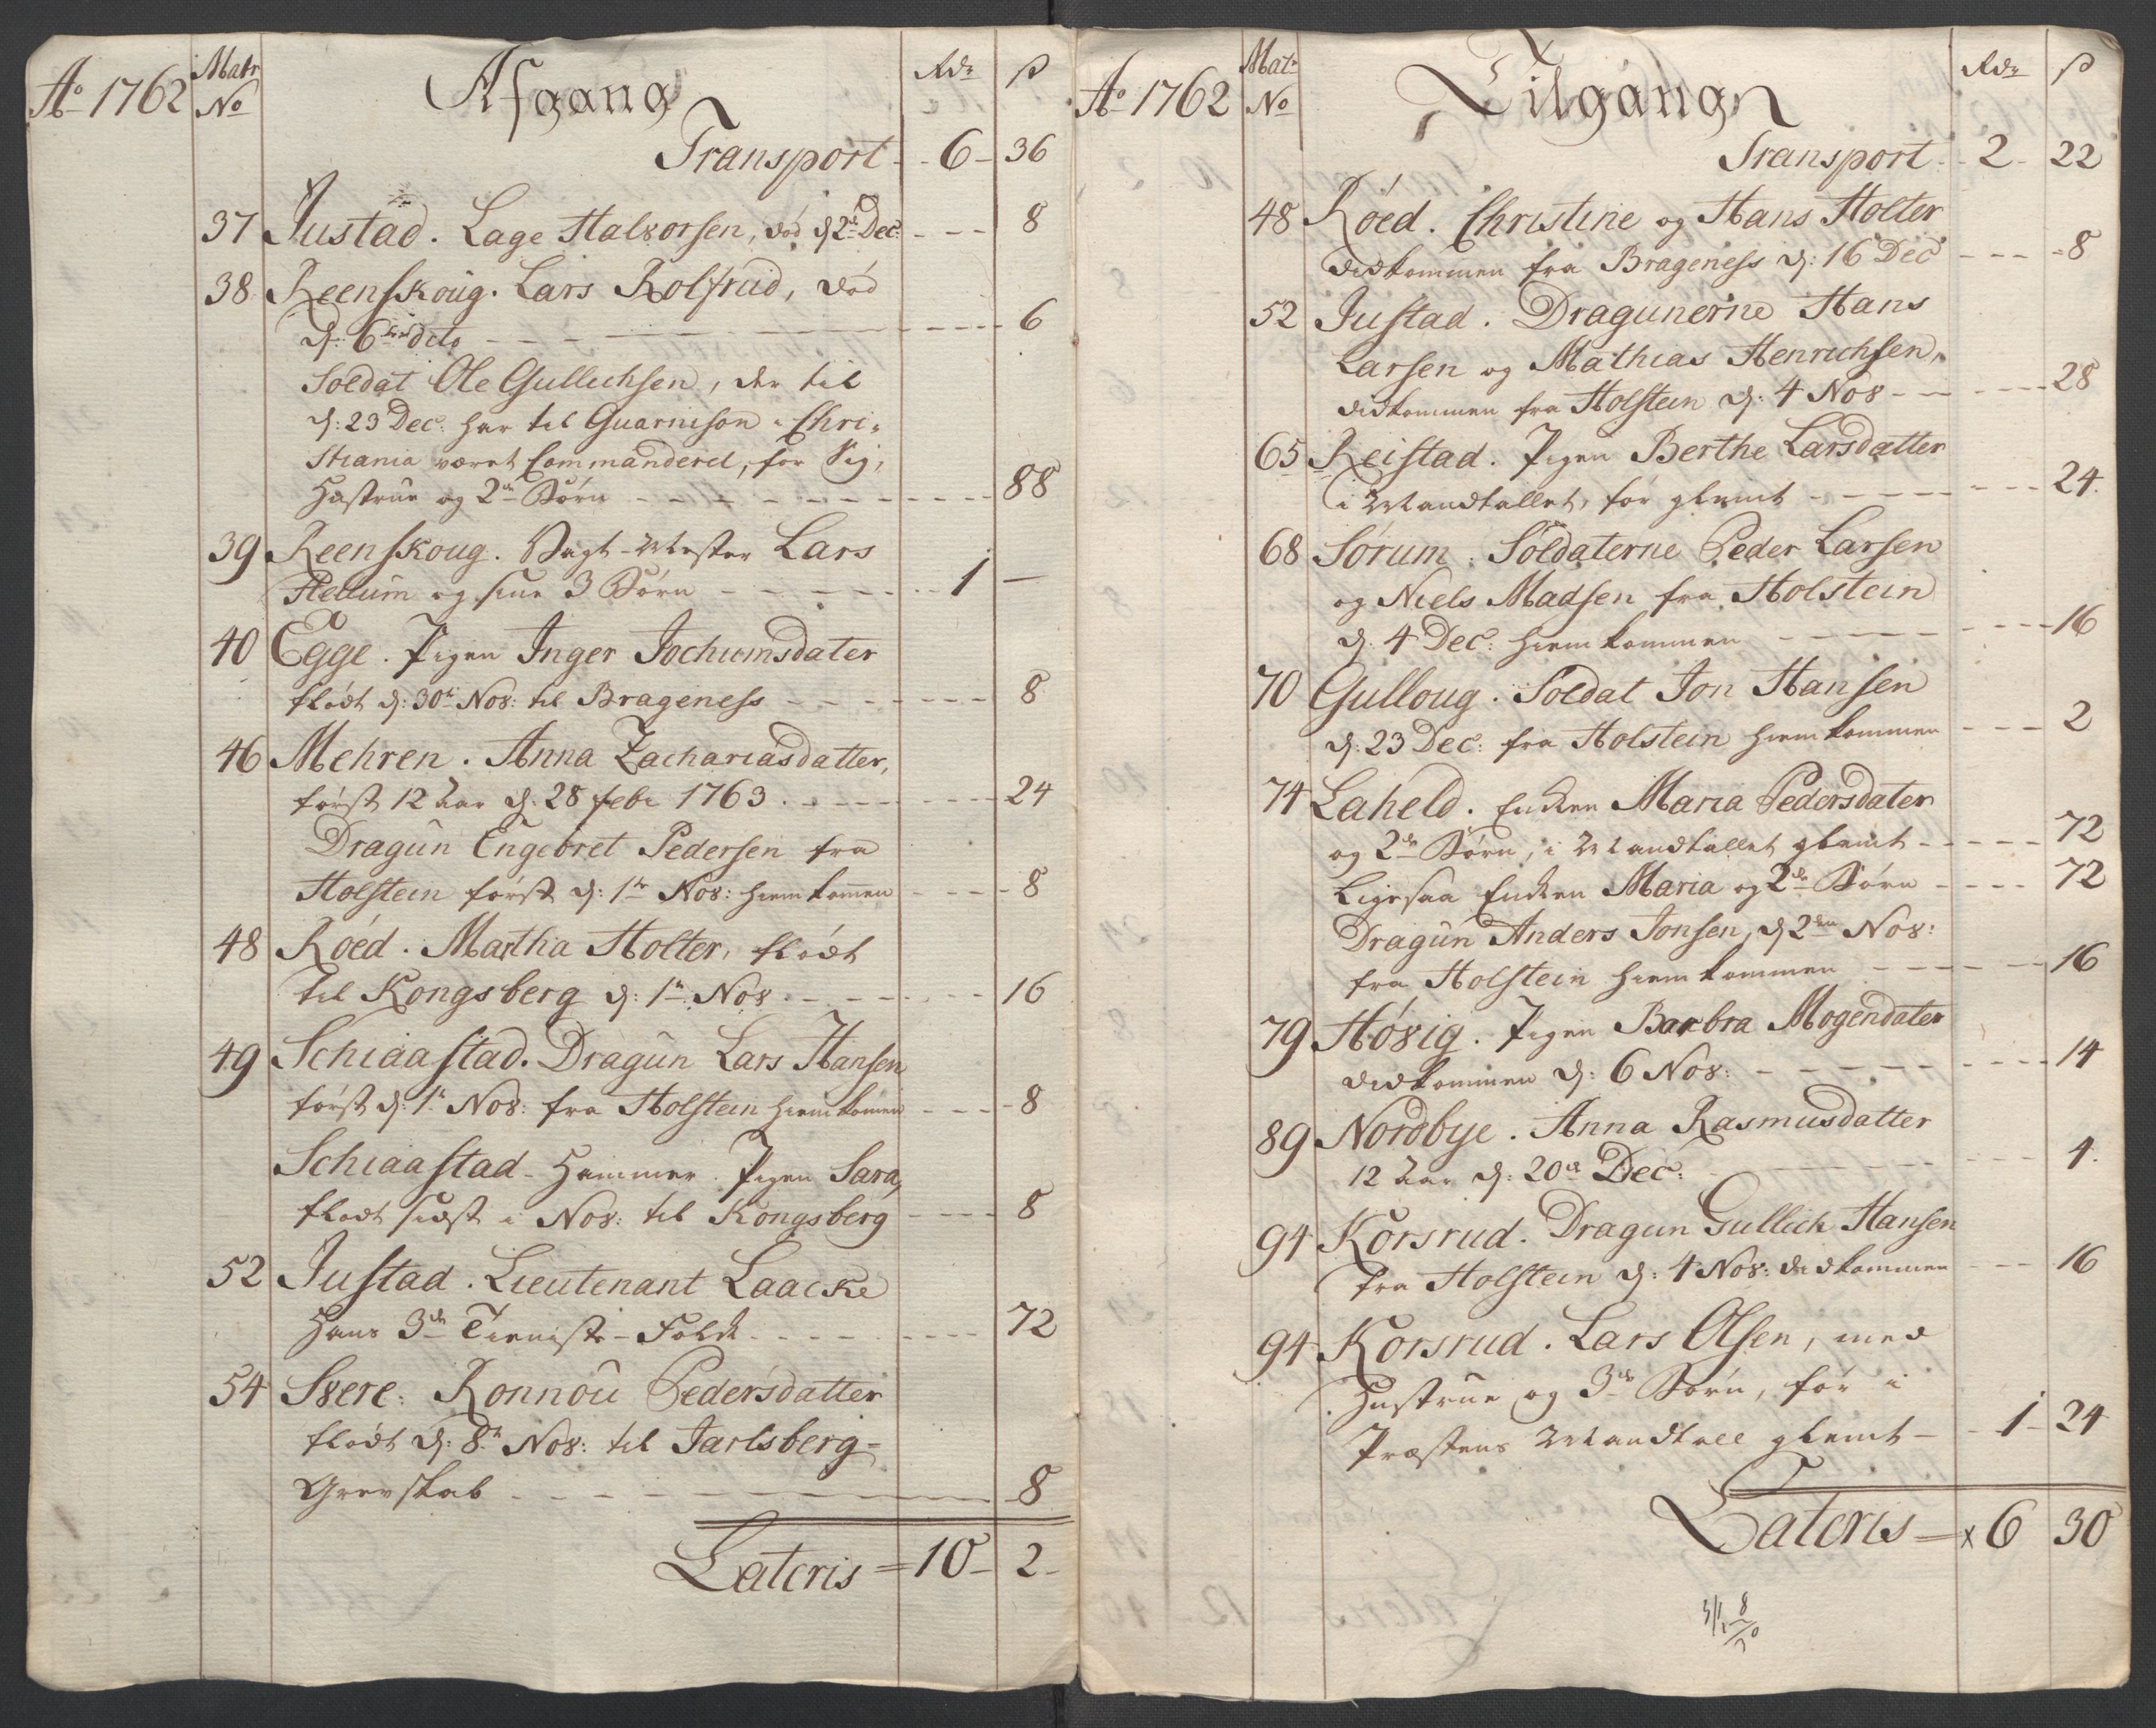 Ao 1762
Matr No
Afgang
Rdr ß
Transport - - 6 - 36
37 Justad. Lage Halvorsen, død d 2de Dec: - - - 8
38 Reenskoug. Lars Rolfrud, død
d: 6te dito - - - 6
Soldat Ole Gullichsen, der til
d: 23 Dec: har til Guarnison i Chri-
stiania været Commanderet, for Sig,
Hustrue og 2de Børn - - - 88
39 Reenskoug. Vagt-Mester Lars
Hellum og sine 3 Børn - - - 1 -
40 Egge. Pigen Inger Jochumsdater
flødt d: 30te Nov: til Brageness - - - 8
46 Mehren. Anna Zachariasdatter,
først 12 Aar d: 28 febr 1763. - - - 24
Dragun Engebret Pedersen fra
Holstein først d: 1te Nov: hiemkommen - - - 8
48 Røed. Martha Holter, flødt
til Kongsberg d: 1te Nov - - - 16
49 Schiaastad. Dragun Lars Hansen
først d: 1te Nov: fra Holstein hiemkommen - - - 8
Schiaastad-Hammer. Pigen Sara,
flødt sidst i Nov: til Kongsberg - - - 8
52 Justad. Lieutenant Laacke
Hans 3de Tieniste-Folck - - - 72
54 Svere. Ronnou Pedersdatter
flødt d: 8te Nov: til Jarlsberg-
Grevskab - - - 8
Lateris = 10 - 2 -
Ao 1762
Matr No
Tilgang
Rdr ß
Transport - - 2 - 22
48 Røed. Christine og Hans Holter
didkommen fra Brageness d: 16 Dec - - - 8
52 Justad. Dragunerne Hans
Larsen og Mathias Henrichsen,
didkommen fra Holstein d: 4 Nov - - - 28
65 Reistad. Pigen Berthe Larsdatter
i Mandtallet, før glemt - - - 24.
68 Sørum. Soldaterne Peder Larsen
og Niels Madsen fra Holstein
d: 4 Dec: hiemkommen - - - 16
70 Gulloug. Soldat Jon Hansen
d: 23 Dec: fra Holstein hiemkommen - - - 2
74 Laheld. Enken Maria Pedersdater
og 2de Børn, i Mandtallet glemt - - - 72
Ligesaa Enken Maria og 2de Børn - - - 72
Dragun Anders Jonsen, d 2den Nov:
fra Holstein hiemkommen - - - 16
79 Høvig. Pigen Barbra Mogendater
didkommen d: 6 Nov: - - - 14
89 Nordbye. Anna Rasmusdatter
12 Aar d: 20de Dec: - - - 4.
94 Korsrud. Dragun Gullich Hansen
fra Holstein d: 4 Nov: didkommen - - - 16
94 Korsrud. Lars Olsen, med
Hustrue og 3de Børn, før i
Præstens Mandtall glemt - - 1 - 24
Lateris = x 6 30